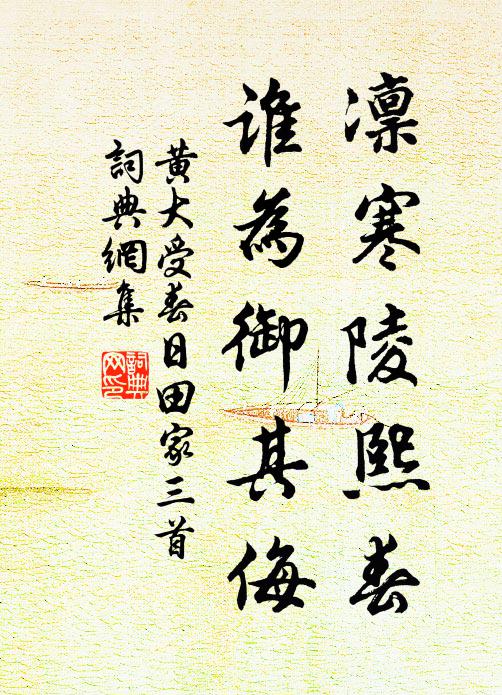 凛寒陵熙春
谁為御其侮
黄大受春日田家三首
詞典網集
詞典网印